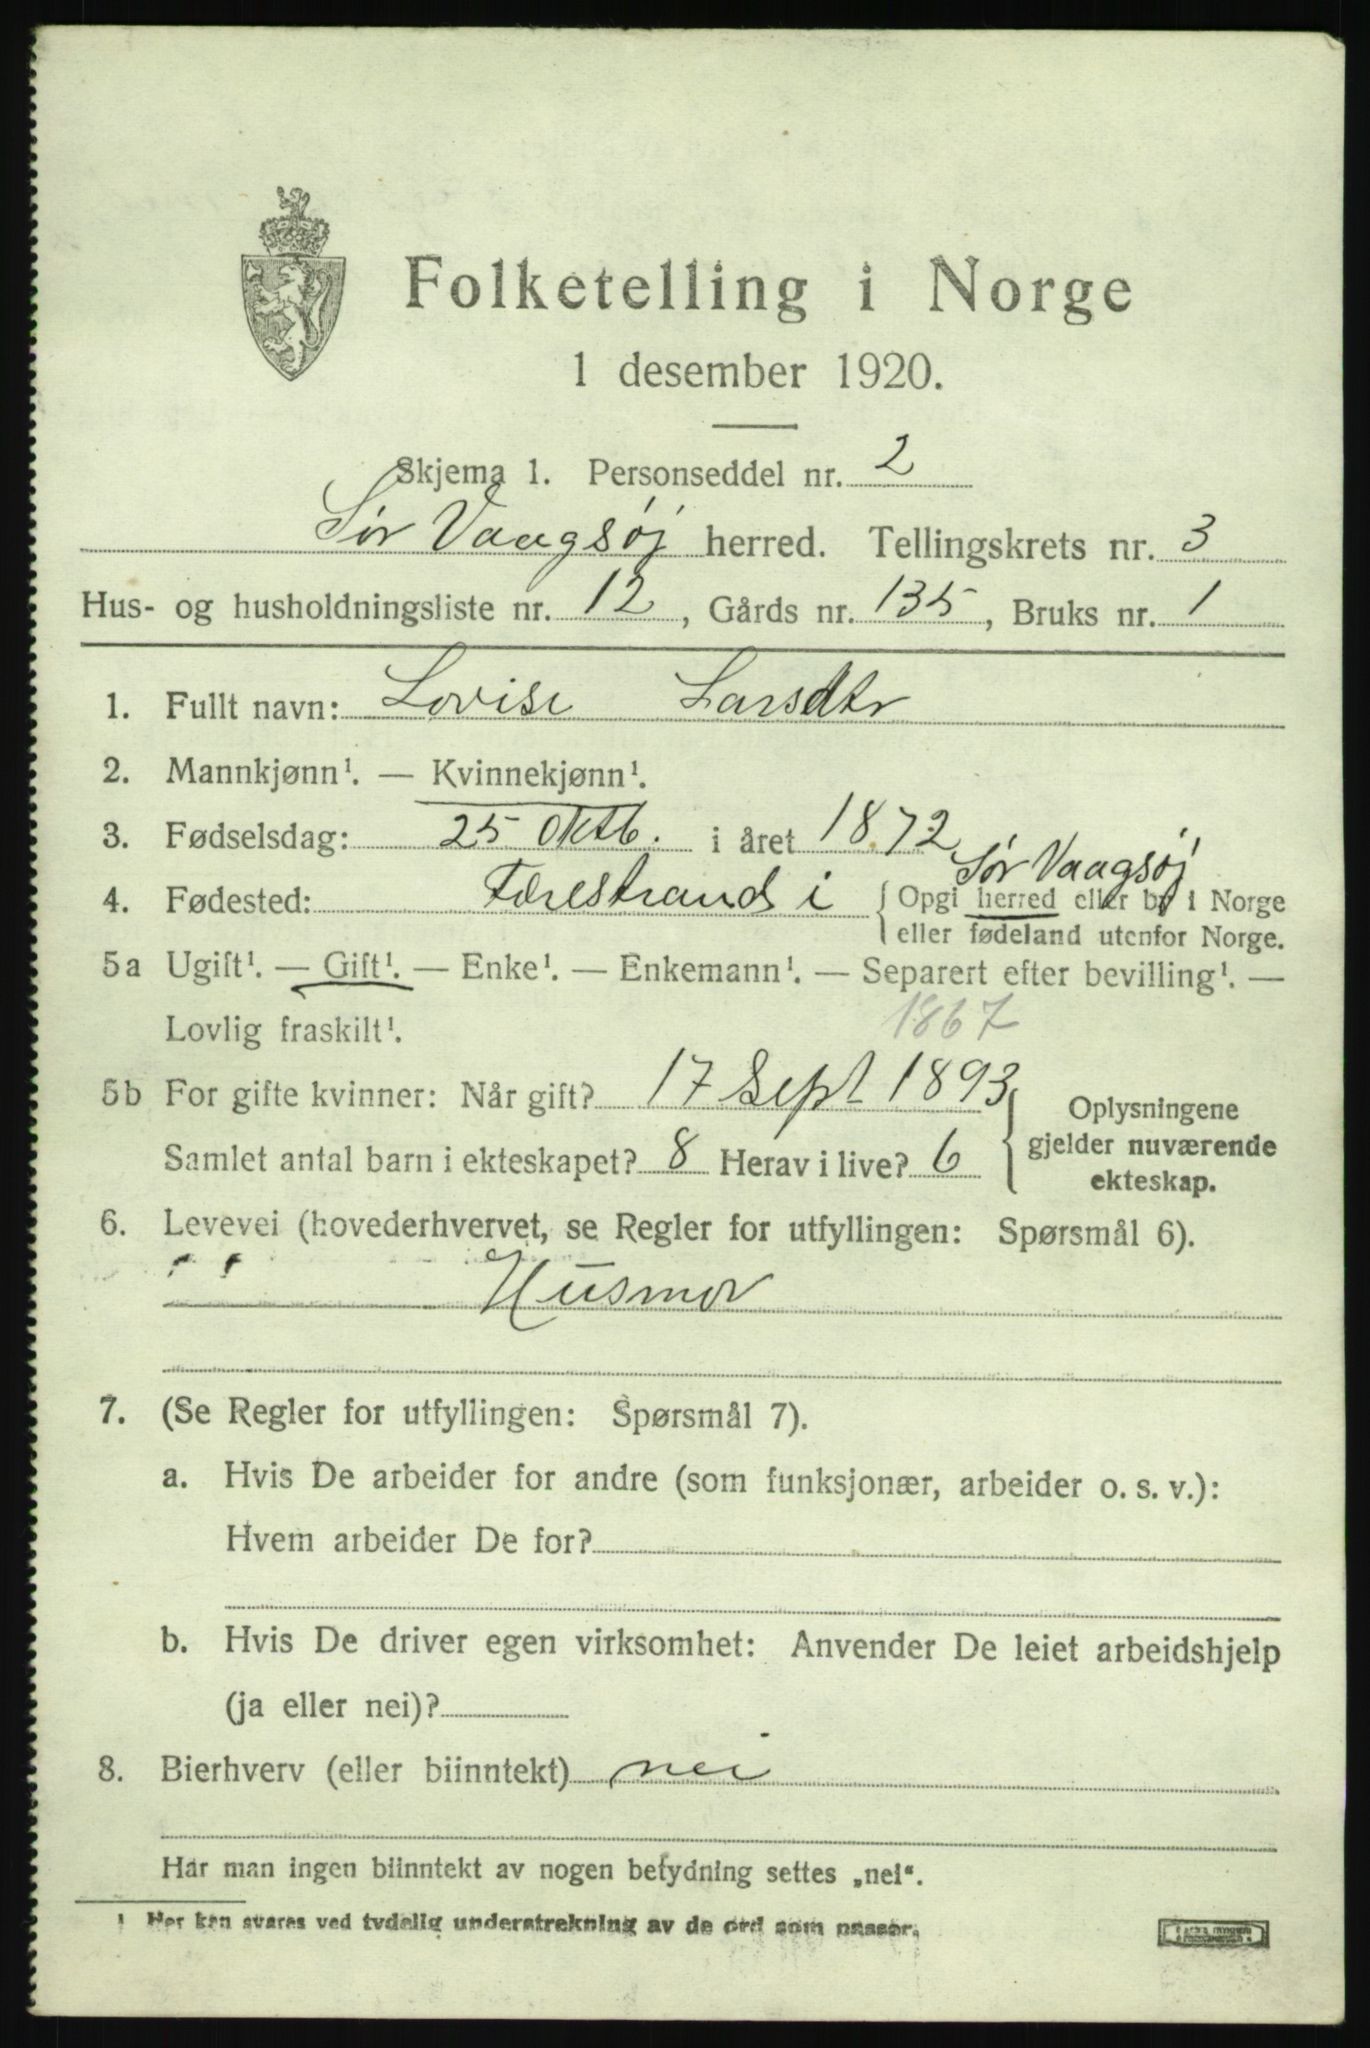 Folketelling i Norge
1 desember 1920.
Skjema 1. Personseddel nr. 2
Sør Vaagsøj herred. Tellingskrets nr. 3
Hus- og husholdningsliste nr. 12, Gårds nr. 135, Bruks nr. 1
1. Fullt navn: Lovise Larsdtr
2. Mannkjønn¹. — Kvinnekjønn¹.
3. Fødselsdag: 25 oktb. i året 1872
4. Fødested: Færestrand i Sør Vaagsøj
{Opgi herred eller by i Norge
eller fødeland utenfor Norge.
5a Ugift¹. — Gift¹. — Enke¹. — Enkemann¹. — Separert efter bevilling¹. —
Lovlig fraskilt¹. 1867
5b For gifte kvinner: Når gift? 17 Sept 1893
Samlet antal barn i ekteskapet? 8 Herav i live? 6
{Oplysningene
gjelder nuværende
ekteskap.
6. Levevei (hovederhvervet, se Regler for utfyllingen: Spørsmål 6).
Husmor
7. (Se Regler for utfyllingen: Spørsmål 7).
a. Hvis De arbeider for andre (som funksjonær, arbeider o. s. v.):
Hvem arbeider De for?
b. Hvis De driver egen virksomhet: Anvender De leiet arbeidshjelp
(ja eller nei)?
8. Bierhverv (eller biinntekt) nei
Har man ingen biinntekt av nogen betydning settes „nei“.
1 Her kan svares ved tydelig understrekning av de ord som passer.